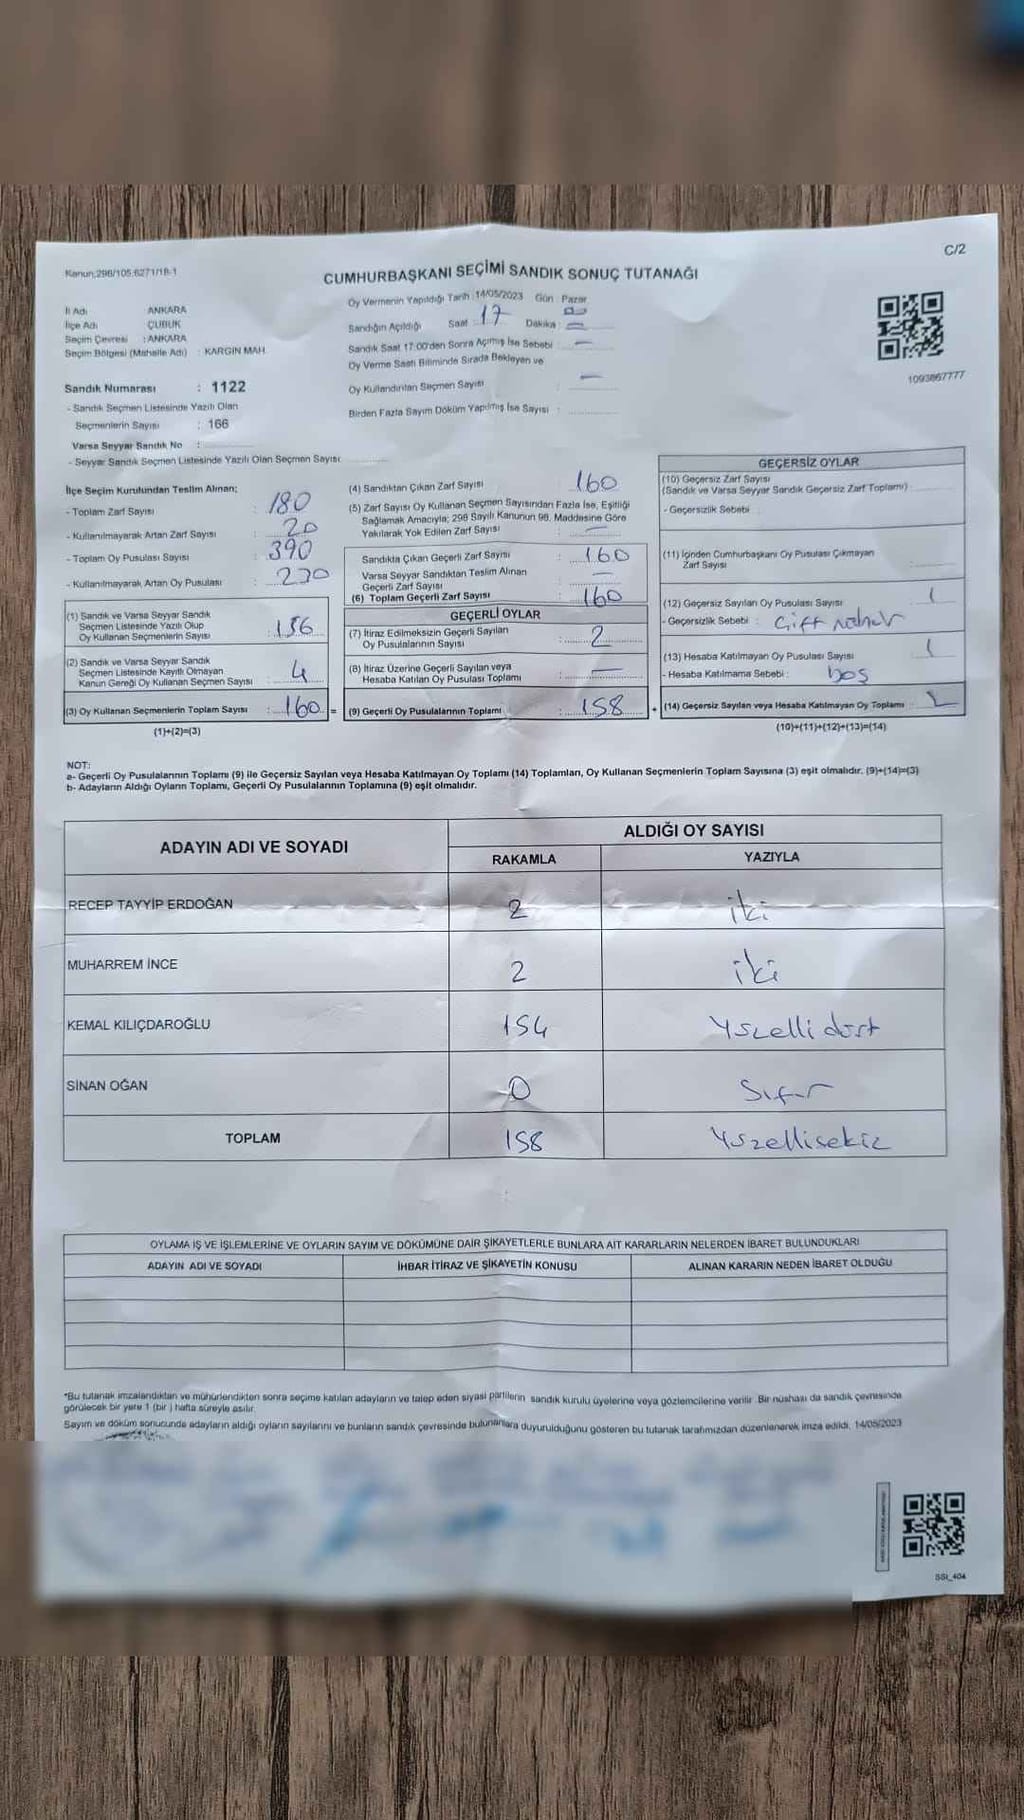 C/2
Kanun;298/105;6271/18-1
CUMHURBAŞKANI SEÇİMİ SANDIK SONUÇ TUTANAĞI
İl Adı ANKARA
İlçe Adı ÇUBUK
Seçim Çevresi : ANKARA
Seçim Bölgesi (Mahalle Adı) : KARGIN MAH.
Sandık Numarası : 1122
- Sandık Seçmen Listesinde Yazılı Olan
Seçmenlerin Sayısı : 166
Varsa Seyyar Sandık No :
- Seyyar Sandık Seçmen Listesinde Yazılı Olan Seçmen Sayısı:
Oy Vermenin Yapıldığı Tarih : 14/05/2023 Gün : Pazar
Sandığın Açıldığı Saat : 17 Dakika :
Sandık Saat 17:00'den Sonra Açılmış İse Sebebi : —
Oy Verme Saati Bitiminde Sırada Bekleyen ve
Oy Kullandırılan Seçmen Sayısı : —
Birden Fazla Sayım Döküm Yapılmış İse Sayısı :
1093867777
İlçe Seçim Kurulundan Teslim Alınan;
- Toplam Zarf Sayısı : 180
- Kullanılmayarak Artan Zarf Sayısı : 20
- Toplam Oy Pusulası Sayısı : 390
- Kullanılmayarak Artan Oy Pusulası : 230
(1) Sandık ve Varsa Seyyar Sandık
Seçmen Listesinde Yazılı Olup
Oy Kullanan Seçmenlerin Sayısı : 156
(2) Sandık ve Varsa Seyyar Sandık
Seçmen Listesinde Kayıtlı Olmayan
Kanun Gereği Oy Kullanan Seçmen Sayısı : 4
(3) Oy Kullanan Seçmenlerin Toplam Sayısı : 160 =
(1)+(2)=(3)
(4) Sandıktan Çıkan Zarf Sayısı 160
(5) Zarf Sayısı Oy Kullanan Seçmen Sayısından Fazla İse, Eşitliği
Sağlamak Amacıyla; 298 Sayılı Kanunun 98. Maddesine Göre
Yakılarak Yok Edilen Zarf Sayısı : —
Sandıkta Çıkan Geçerli Zarf Sayısı : 160
Varsa Seyyar Sandıktan Teslim Alınan
Geçerli Zarf Sayısı : —
(6) Toplam Geçerli Zarf Sayısı : 160
GEÇERLİ OYLAR
(7) İtiraz Edilmeksizin Geçerli Sayılan
Oy Pusulalarının Sayısı : 2
(8) İtiraz Üzerine Geçerli Sayılan veya
Hesaba Katılan Oy Pusulası Toplamı : —
(9) Geçerli Oy Pusulalarının Toplamı : 158 +
GEÇERSİZ OYLAR
(10) Geçersiz Zarf Sayısı
(Sandık ve Varsa Seyyar Sandık Geçersiz Zarf Toplamı) :
- Geçersizlik Sebebi :
(11) İçinden Cumhurbaşkanı Oy Pusulası Çıkmayan
Zarf Sayısı :
(12) Geçersiz Sayılan Oy Pusulası Sayısı : 1
- Geçersizlik Sebebi : Çift mühür
(13) Hesaba Katılmayan Oy Pusulası Sayısı : 1
- Hesaba Katılmama Sebebi : boş
(14) Geçersiz Sayılan veya Hesaba Katılmayan Oy Toplamı : 2
(10)+(11)+(12)+(13)=(14)
NOT:
a- Geçerli Oy Pusulalarının Toplamı (9) ile Geçersiz Sayılan veya Hesaba Katılmayan Oy Toplamı (14) Toplamları, Oy Kullanan Seçmenlerin Toplam Sayısına (3) eşit olmalıdır. (9)+(14)=(3)
b- Adayların Aldığı Oyların Toplamı, Geçerli Oy Pusulalarının Toplamına (9) eşit olmalıdır.
ADAYIN ADI VE SOYADI ALDIĞI OY SAYISI
RAKAMLA YAZIYLA
RECEP TAYYİP ERDOĞAN 2 iki
MUHARREM İNCE 2 iki
KEMAL KILIÇDAROĞLU 154 Yüzellidört
SİNAN OĞAN 0 Sıfır
TOPLAM 158 Yüzellisekiz
OYLAMA İŞ VE İŞLEMLERİNE VE OYLARIN SAYIM VE DÖKÜMÜNE DAİR ŞİKAYETLERLE BUNLARA AİT KARARLARIN NELERDEN İBARET BULUNDUKLARI
ADAYIN ADI VE SOYADI İHBAR İTİRAZ VE ŞİKAYETİN KONUSU ALINAN KARARIN NEDEN İBARET OLDUĞU
*Bu tutanak imzalandıktan ve mühürlendikten sonra seçime katılan adayların ve talep eden siyasi partilerin sandık kurulu üyelerine veya gözlemcilerine verilir. Bir nüshası da sandık çevresinde
görülecek bir yere 1 (bir) hafta süreyle asılır.
Sayım ve döküm sonucunda adayların aldığı oyların sayılarını ve bunların sandık çevresinde bulunanlara duyurulduğunu gösteren bu tutanak tarafımızdan düzenlenerek imza edildi. 14/05/2023
SSI_404